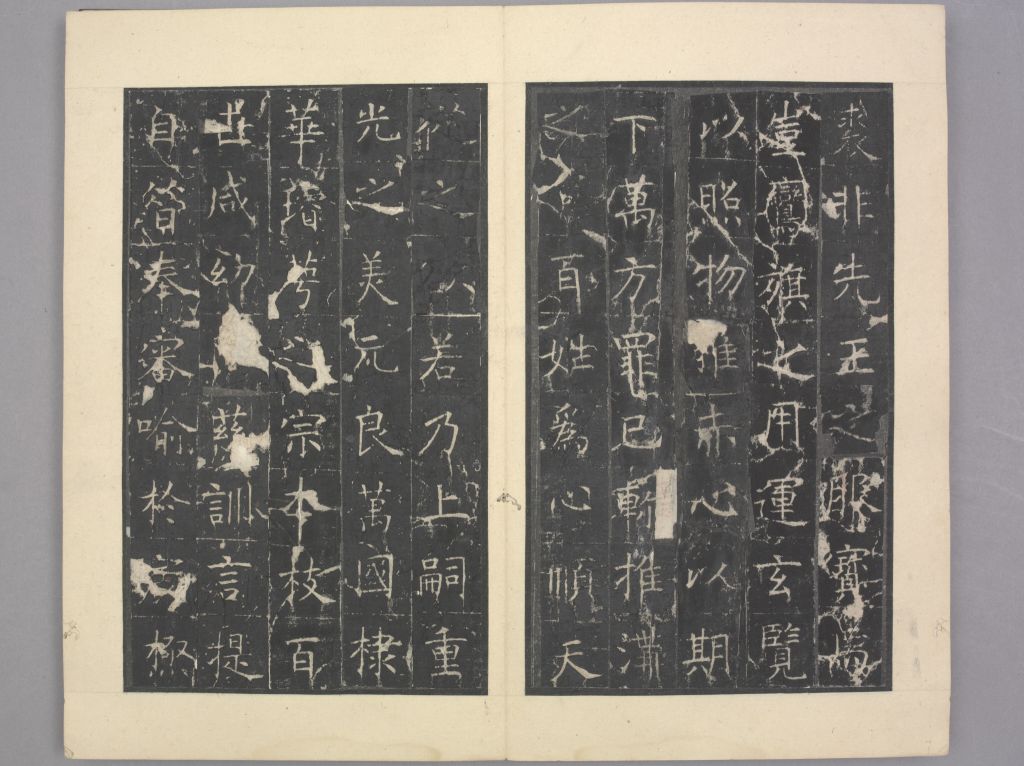 裘非先王之服寶馬
豈鸞旗之用運玄覽
以照物推赤心以期
下萬方罪己斬推溝
之 百姓為心順天
從之 若乃上嗣重
光之美元良萬國棣
華增萼之宗本枝百
世咸幼 慈訓言提
自簡奉審喻於 極